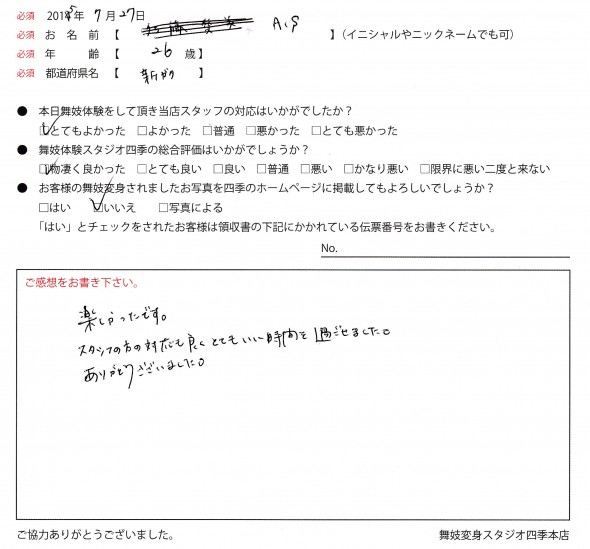 必須 2015年 7月 27日
必須 お 名 前 【 A.S 】（イニシャルやニックネームでも可）
必須 年 齢 【 26 歳】
必須 都道府県名 【 】
● 本日舞妓体験をして頂き当店スタッフの対応はいかがでしたか？
□とてもよかった □よかった □普通 □悪かった □とても悪かった
● 舞妓体験スタジオ四季の総合評価はいかがでしょうか？
□物凄く良かった □とても良い □良い □普通 □悪い □かなり悪い □限界に悪い二度と来ない
● お客様の舞妓変身されましたお写真を四季のホームページに掲載してもよろしいでしょうか？
□はい □いいえ □写真による
「はい」とチェックをされたお客様は領収書の下記にかかれている伝票番号をお書きください。
No.
ご感想をお書き下さい。
楽しかったです。
スタッフの方の対応も良くとてもいい時間を過ごせました。
ありがとうございました。
ご協力ありがとうございました。
舞妓変身スタジオ四季本店